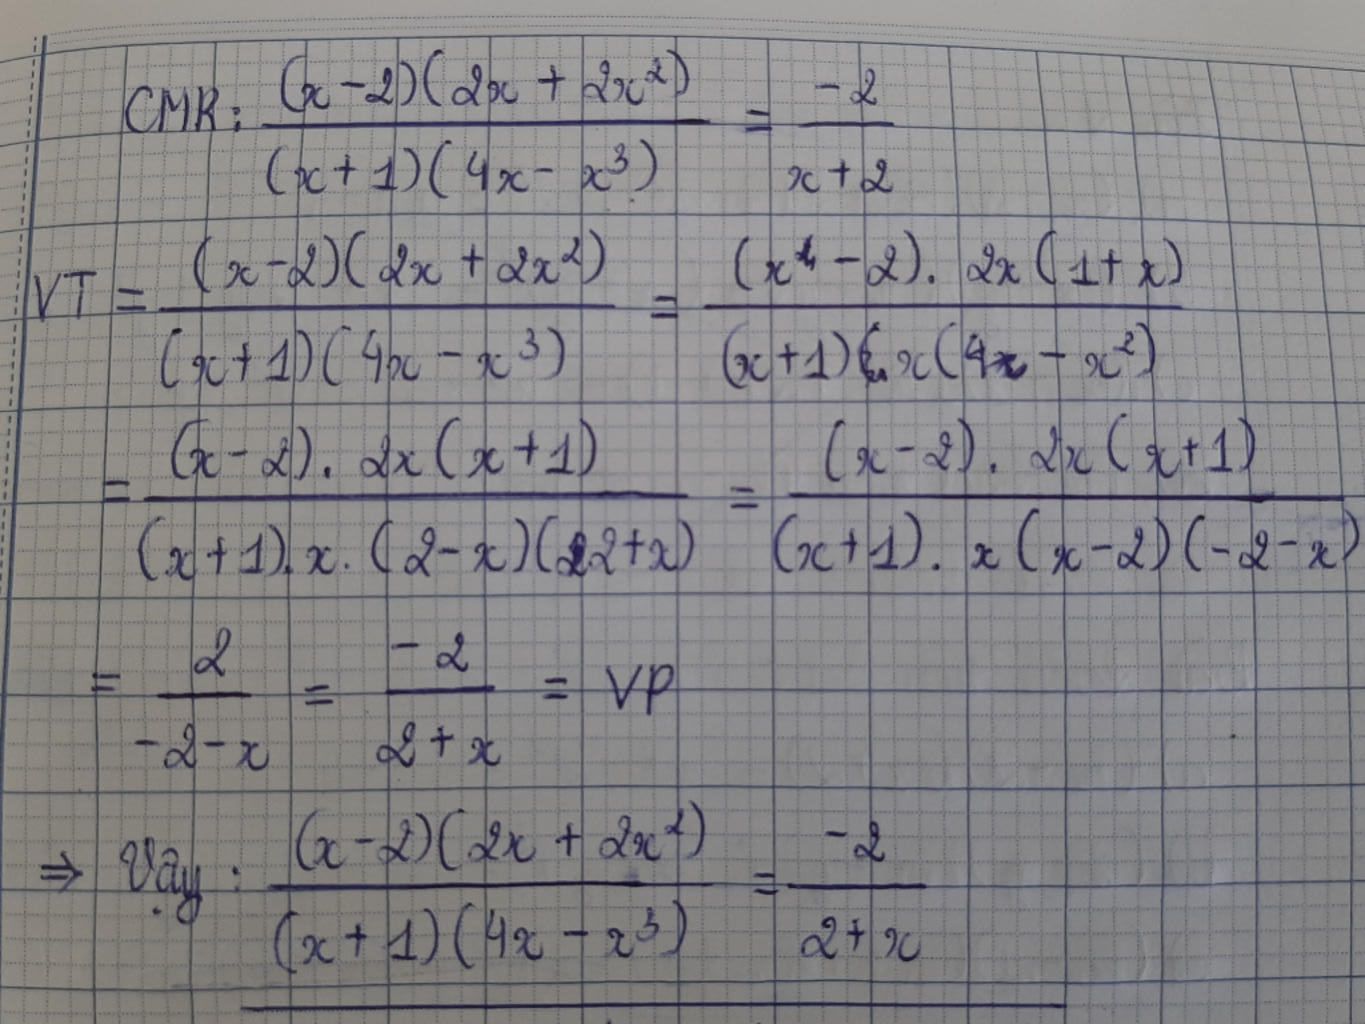 CMR: \frac{(x-2)(2x+2x^2)}{(x+1)(4x-x^3)} = \frac{-2}{x+2}
VT = \frac{(x-2)(2x+2x^2)}{(x+1)(4x-x^3)} = \frac{(x-2). 2x(1+x)}{(x+1).x(4-x^2)}
= \frac{(x-2). 2x(x+1)}{(x+1).x.(2-x)(2+x)} = \frac{(x-2). 2x(x+1)}{(x+1). x(x-2)(-2-x)}
= \frac{2}{-2-x} = \frac{-2}{2+x} = VP
⇒ Vậy : \frac{(x-2)(2x+2x^2)}{(x+1)(4x-x^3)} = \frac{-2}{2+x}